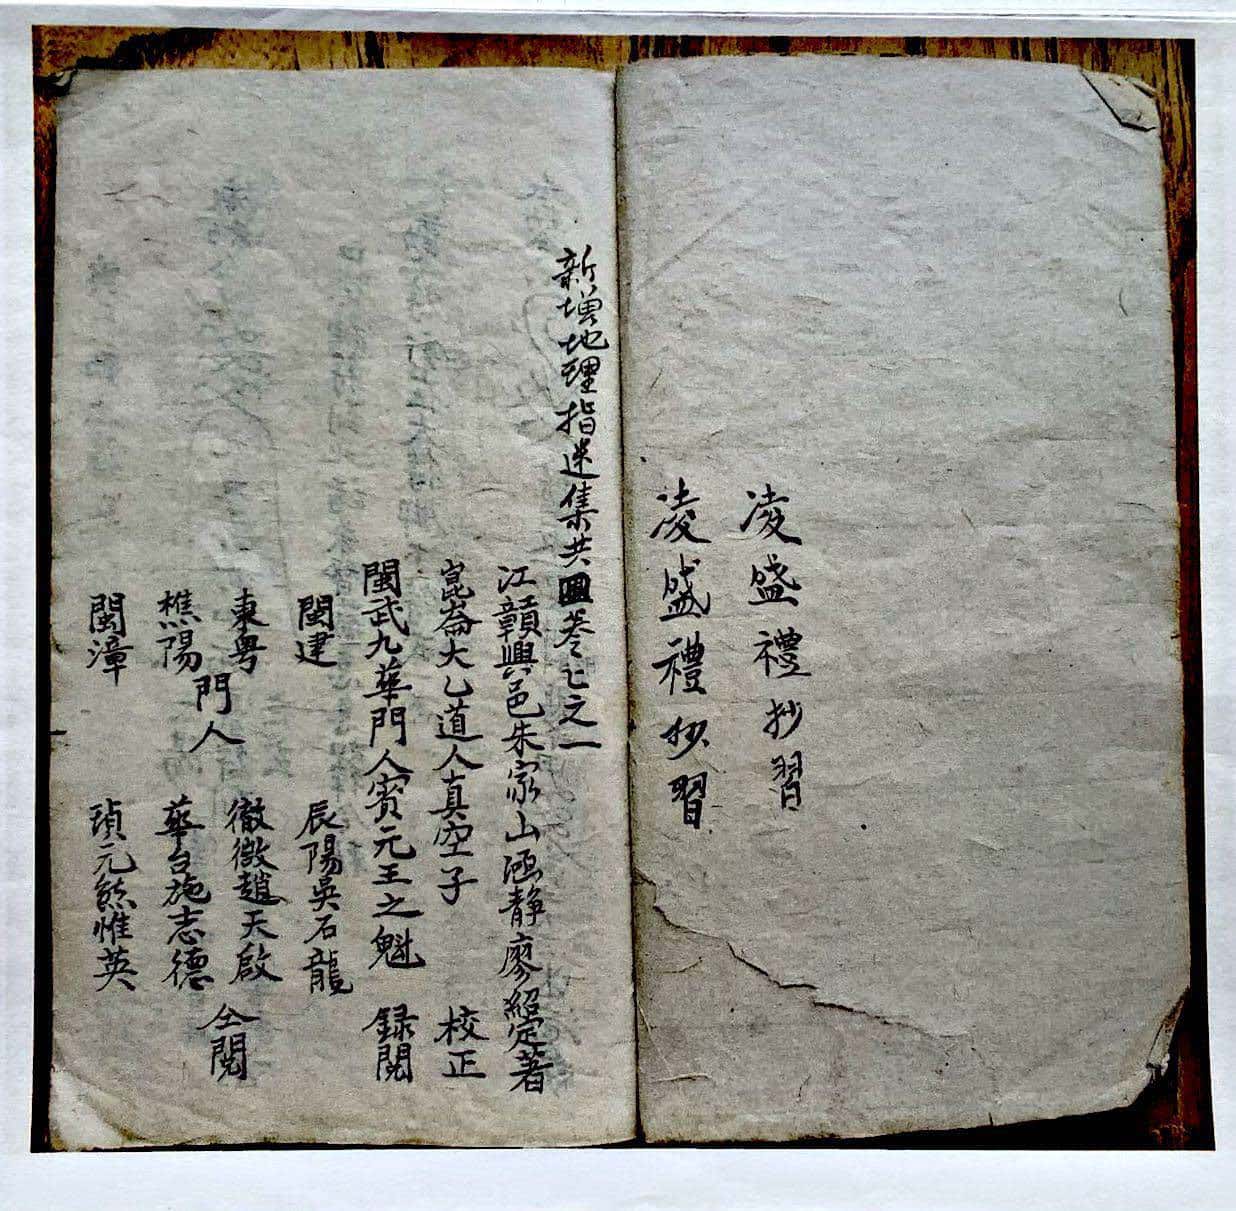 凌盛禮抄習
凌盛禮抄習
新增地理指迷集共四卷之一
江贛興邑朱家山涵靜廖紹定著
崑崙大乙道人真空子 校正
閩武九華門人賓元王之魁 錄閱
閩建 辰陽吳石龍
東粤 徽徴趙天啟
樵陽 華台施志德
門人 仝閱
閩漳 頊元熊惟英